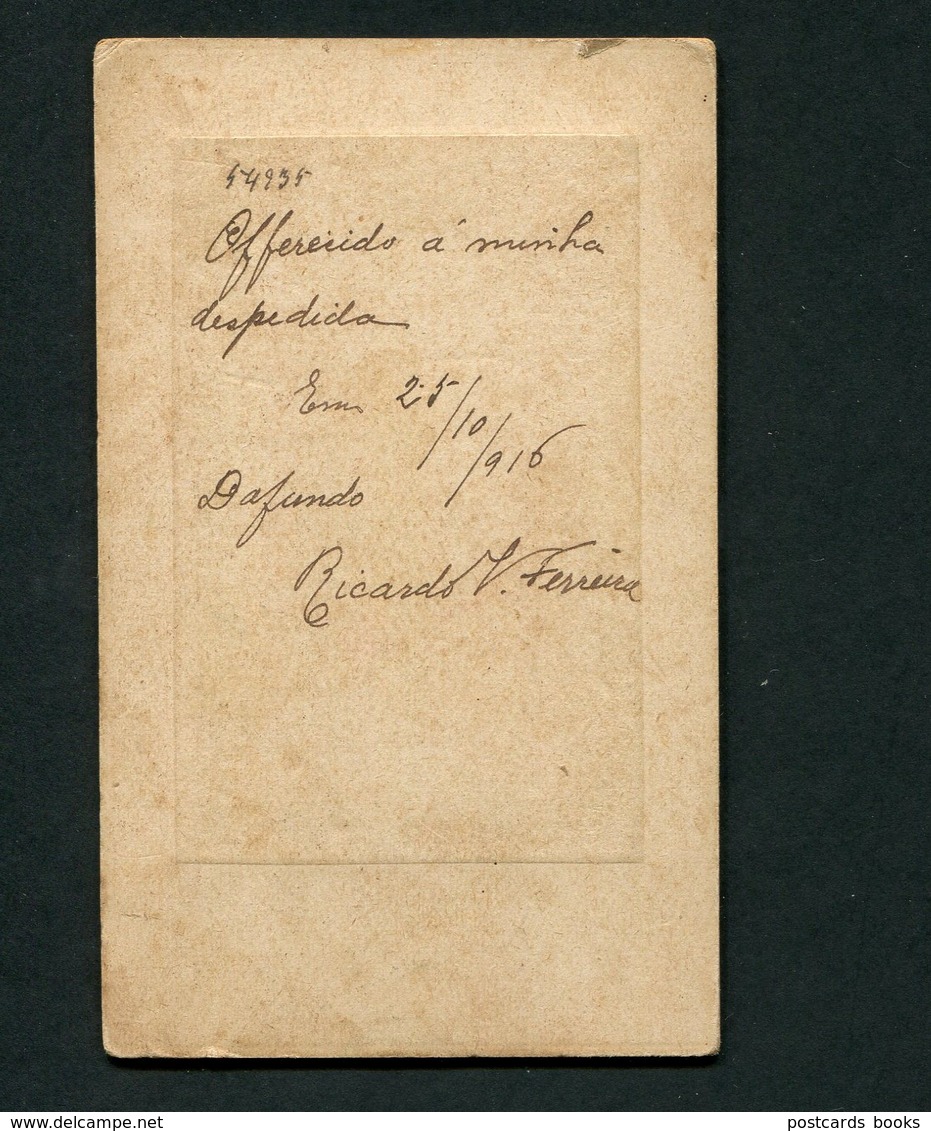 54935
Offerecido á minha
despedida
Em 25/10/916
Dafundo
Ricardo V. Ferreira
postcards books